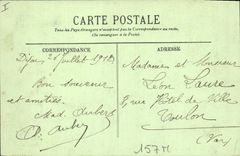 I
CARTE POSTALE
Tous les Pays étrangers n'acceptent pas la Correspondance au recto.
(Se renseigner à la Poste)
CORRESPONDANCE
ADRESSE
Dijon, 20 Juillet 191
Bon souvenir
et amitiés.
Madame et Monsieur
Léon Laure
9, rue Hôtel de Ville
Toulon
(Var)
157M